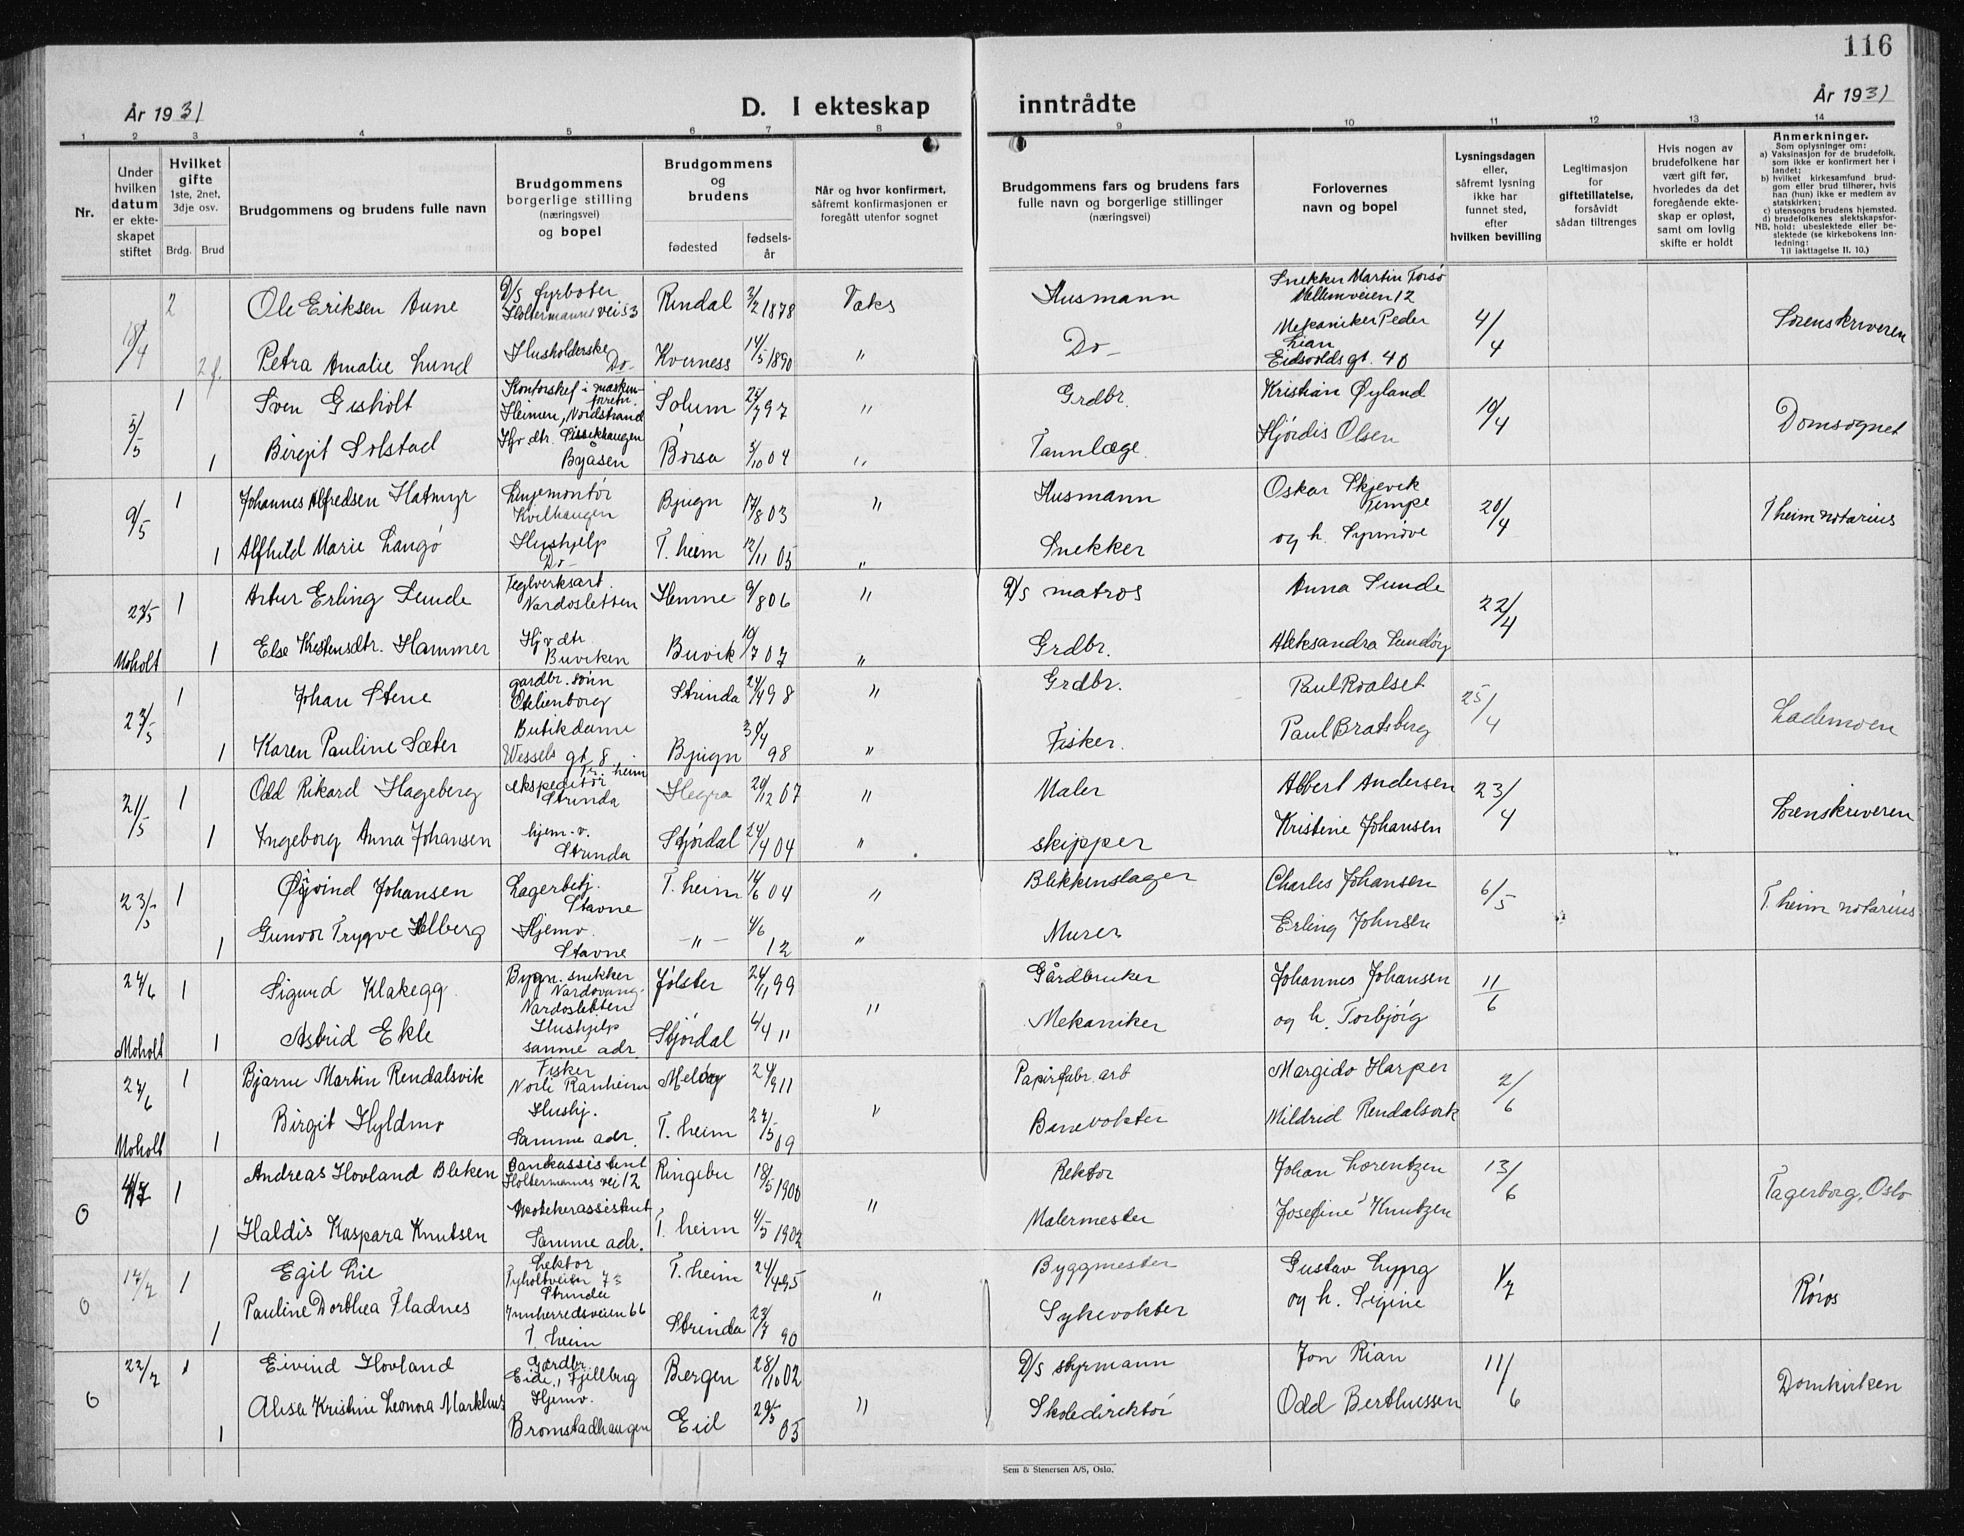 116
År 1931
D. I ekteskap inntrådte
År 1931
1 2 3 4 5 6 7 8 9 10 11 12 13 14
Nr.
Under hvilken datum er ekteskapet stiftet
Hvilket gifte 1ste, 2net, 3dje osv.
Brdg. Brud
Brudgommens og brudens fulle navn
Brudgommens borgerlige stilling (næringsvei) og bopel
Brudgommens og brudens
fødested
fødselsår
Når og hvor konfirmert, såfremt konfirmasjonen er foregått utenfor sognet
Brudgommens fars og brudens fars fulle navn og borgerlige stillinger (næringsvei)
Forlovernes navn og bopel
Lysningsdagen eller, såfremt lysning ikke har funnet sted, efter hvilken bevilling
Legitimasjon for giftetillatelse, forsåvidt sådan tiltrenges
Hvis nogen av brudefolkene har vært gift før, hvorledes da det foregående ekteskap er opløst, samt om lovlig skifte er holdt
Anmerkninger.
Som oplysninger om:
a) Vaksinasjon for de brudefolk, som ikke er konfirmert her i landet;
b) hvilket kirkesamfund brudgom eller brud tilhører, hvis han (hun) ikke er medlem av statskirken;
c) utensogns brudens hjemsted.
d) brudefolkenes slektskapsforhold: ubeslektede eller beslektede (se kirkebokens innledning:
NB. Til iakttagelse II. 10.)
18/4 2 Ole Eriksen Aune D/S fyrbøter Holtermanns vei 53 Rindal 2/2 1878 Vaks Husmann Snekker Martin Forsø Mellemveien 12 4/4 Sorenskriveren
2 f. Petra Amalie Lund Husholderske Do- Kverness 14/5 1890 " Do- Mekaniker Peder Lian Eidsvolds gt. 40
5/5 1 Sven Gisholt Kontorskef i maskinforretn. Heimen, Nordstrand Solum 24/7 97 " Grdbr. Kristian Øyland 10/4 Domsognet
1 Birgit Solstad Hjv. dtr. Byåsen Børsa 3/10 04 " Tannlæge Hjørdis Olsen
9/5 1 Johannes Alfredsen Hatmyr Linjemontør Kvilhaugen Bjugn 17/8 03 " Husmann Oskar Skjevik Tempe 20/4 T heim notarius
1 Alfhild Marie Langø Hushjelp Do- T. heim 12/11 05 " Snekker og h. Synnøve
23/5 1 Artur Erling Sunde Teglverksarb. Nardosletten Hemne 9/8 06 " D/S matros Anna Sunde 22/4
Moholt 1 Else Kristensdtr. Hammer Hjv dtr Buviken Buvik 10/7 07 " Grdbr. Aleksandra Sundøy
23/5 1 Johan Stene gardbr. sønn Othienborg Strinda 24/4 98 " Grdbr. Paul Roalset 25/4 Lademoen
1 Karen Pauline Sæter Butikdame Wessels gt 8 Tr. heim Bjugn 30/4 98 " Fisker. Paul Bratsberg
21/5 1 Odd Rikard Hageberg ekspeditør Strinda Hegra 20/12 07 " Maler Albert Andersen 23/4 Sorenskriveren
1 Ingeborg Anna Johansen hjem.v. Strinda Stjørdal 24/4 04 " skipper Kristine Johansen
23/5 1 Øivind Johansen Lagerbetj. Stavne T. heim 14/6 04 " Blikkenslager Charles Johansen 6/5 T. heim notarius
1 Gunvor Trygve Solberg Hjemv. Stavne -"- 4/6 12 " Murer Erling Johnsen
24/6 1 Sigurd Klakegg Bygn. snekker Nardovang Nardosletten Jølster 24/11 99 " Gårdbruker Johannes Johansen 11/6
Moholt 1 Astrid Ekle Hushjelp samme adr Stjørdal 4/4 11 Mekaniker og h. Torbjørg
24/6 1 Bjarne Martin Rendalsvik Fisker Norli Ranheim Meløy 24/9 11 " Papirfabr. arb Margido Harper 2/6
Moholt 1 Birgit Hyldmo Hushj. Samme adr. T. heim 27/5 09 Banevokter Mildrid Rendalsvik
0 4/7 1 Andreas Hovland Bleken Bankassistent Holtermanns vei 12 Ringebu 18/5 1900 " Rektor Johan Lorentzen 13/6 Fagerborg, Oslo
1 Haldis Kaspara Knutsen Apotekerassistent, Samme adr. T. heim 4/5 1902 Malermester Josefine Knutzen
0 17/7 1 Egil Lie Lektor Tyholtveien 73 Strinda T. heim 24/4 95 " Byggmester Gustav Lyng 1/7 Røros
1 Pauline Dorthea Fladnes Innherredsveien 66 T heim Strinda 23/7 90 Sykevokter og h. Sigine
0 22/7 1 Eivind Hovland Gardbr. Eide, Fjellberg Bergen 28/10 02 D/S styrmann Jon Rian 11/6 Domkirken
1 Alisa Kristine Leonora Markhus Hjemv. Bromstadhaugen Eid 29/5 05 " Skoledirektør Odd Berthussen
Sem & Stenersen A/S, Oslo.